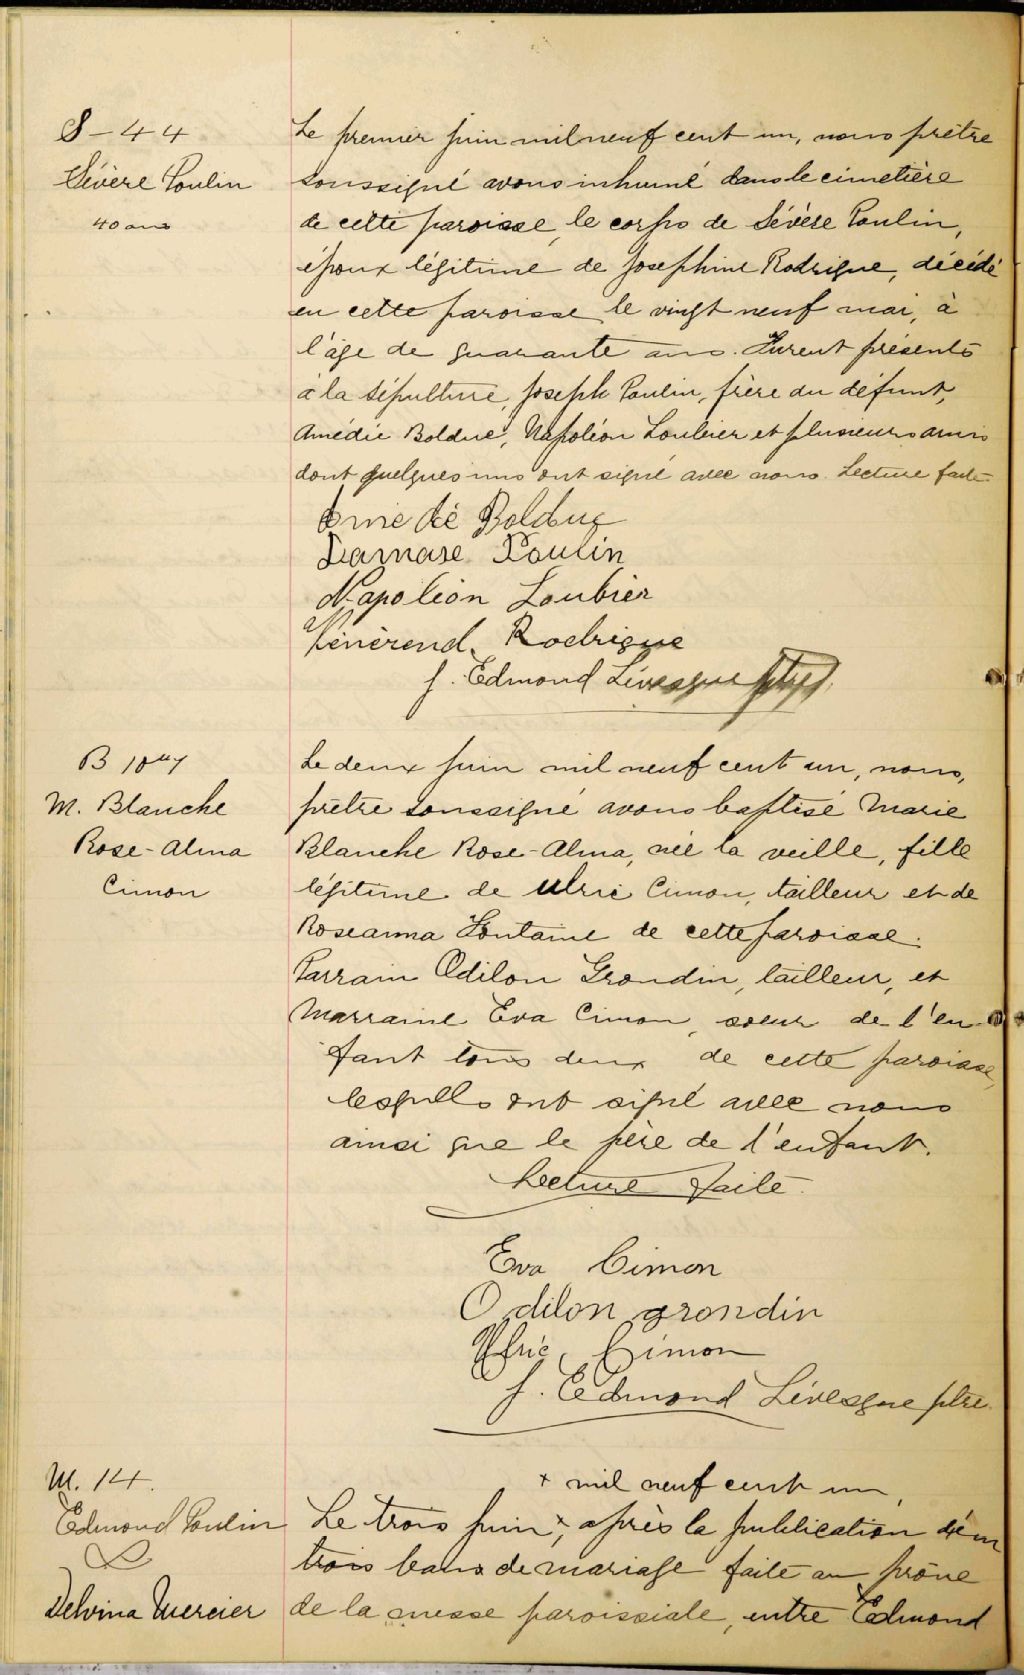 S-44
Sévère Poulin
40 ans
Le premier juin mil neuf cent un, nous prêtre
soussigné avons inhumé dans le cimetière
de cette paroisse, le corps de Sévère Poulin,
époux légitime de Josephine Rodrigue, décédé
en cette paroisse le vingt neuf mai, à
l'âge de quarante ans. Furent présents
à la sépulture, Joseph Poulin, frère du défunt,
Amédée Bolduc, Napoléon Loubier et plusieurs amis
dont quelques uns ont signé avec nous. Lecture faite
Amedé Bolduc
Damase Poulin
Napoléon Loubier
Vénérend Rodrigue
J. Edmond Lévesque ptre
B
M. Blanche
Rose-Alma
Cimon
Le deux juin mil neuf cent un, nous,
prêtre soussigné avons baptisé Marie
Blanche Rose-Alma, née la veille, fille
légitime de Ulric Cimon, tailleur et de
Roseanna Fontaine de cette paroisse.
Parrain Odilon Grondin, tailleur, et
Marraine Eva Cimon, soeur de l'en-
fant tous deux de cette paroisse,
lesquels ont signé avec nous
ainsi que le père de l'enfant.
Lecture faite.
Eva Cimon
Odilon grondin
Ulric Cimon
J. Edmond Lévesque ptre
M. 14.
Edmond Poulin
&
Delvina Mercier
+ mil neuf cent un,
Le trois juin +, après la publication
trois bans de mariage faite au prône
de la messe paroissiale, entre Edmond